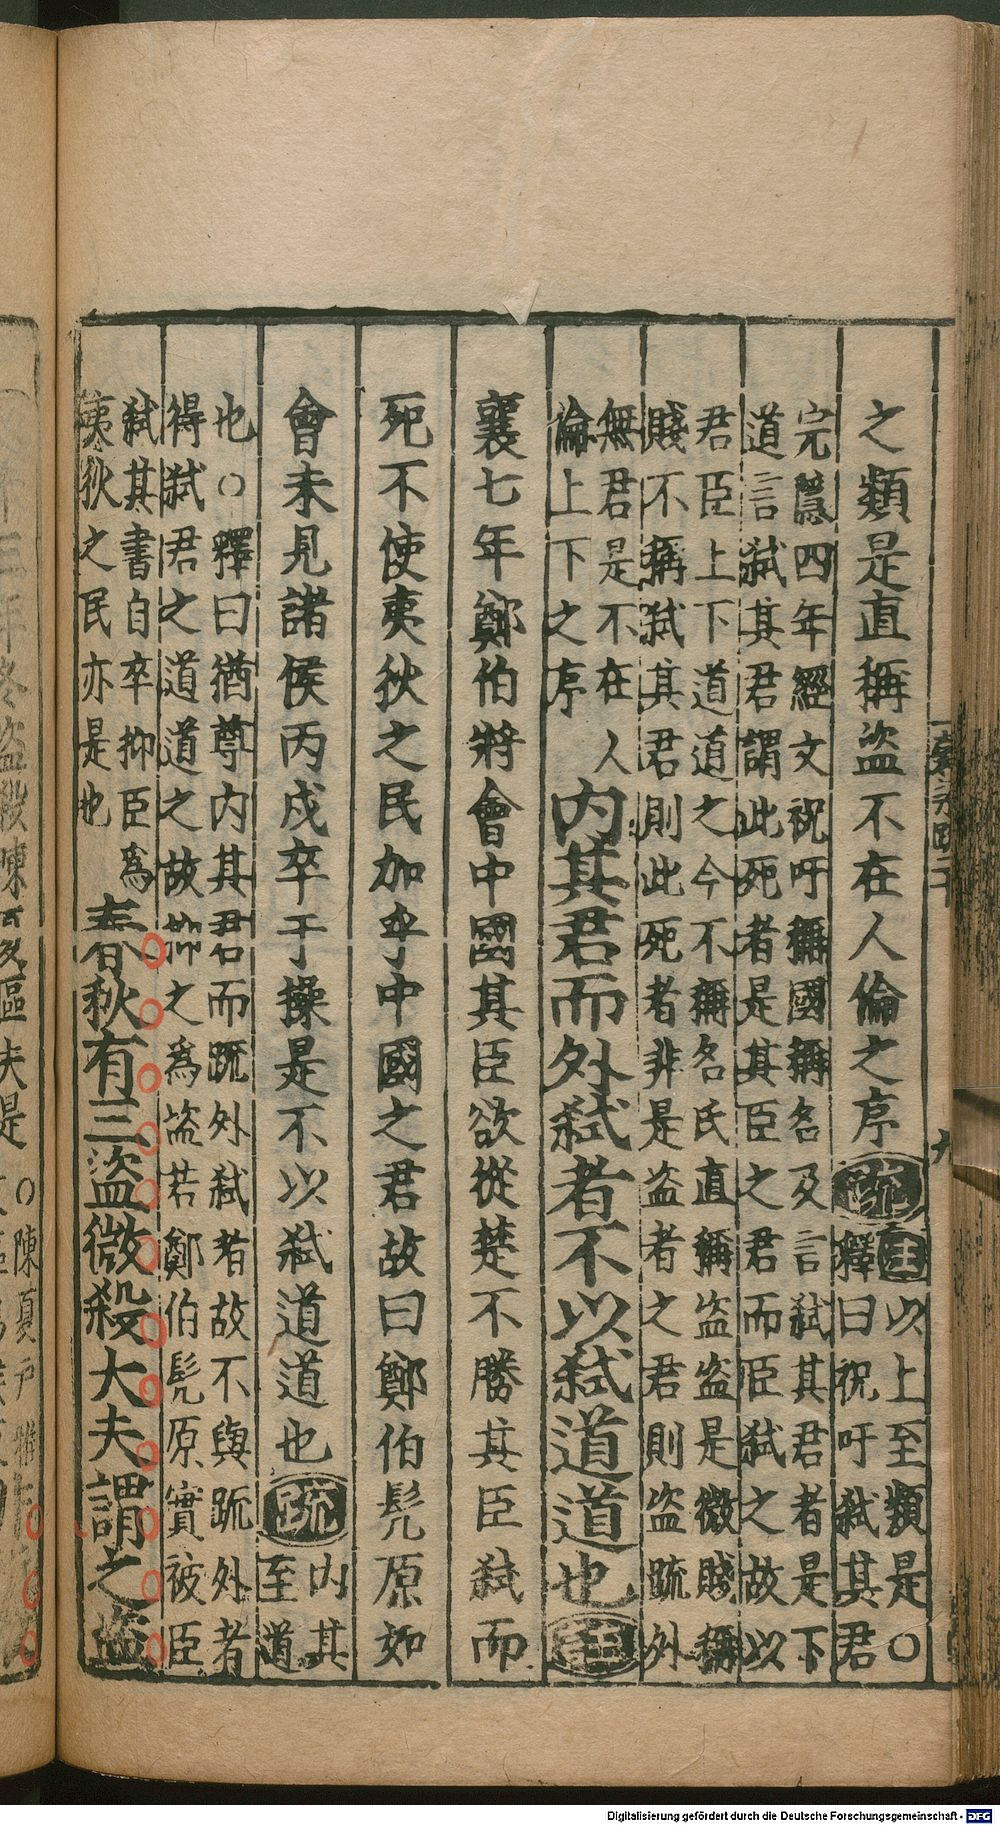 之類是直稱盜不在人倫之序疏
注以上至類是○
釋曰祝吁弑其君
完隱四年經文祝吁稱國稱名及言弑其君者是下
道言弑其君謂此死者是其臣之君而臣弑之故以
君臣上下道道之今不稱名氏直稱盜盜是微賤稱
賤不稱弑其君則此死者非是盜者之君則盜疏外
無君是不在人
倫上下之序
內其君而外弑者不以弑道道也注
襄七年鄭伯將會中國其臣欲從楚不勝其臣弑而
死不使夷狄之民加乎中國之君故曰鄭伯髡原如
會未見諸侯丙戌卒于操是不以弑道道也疏
內其
至道
也○釋曰猶尊內其君而疏外弑者故不與疏外者
得弑君之道道之故抑之為盜若鄭伯髡原實被臣
弑其書自卒抑臣為
夷狄之民亦是也
春秋有三盜微殺大夫謂之盜
三年冬盜殺陳夏區夫是
○陳夏戶雅
Digitalisierung gefördert durch die Deutsche Forschungsgemeinschaft - DFG